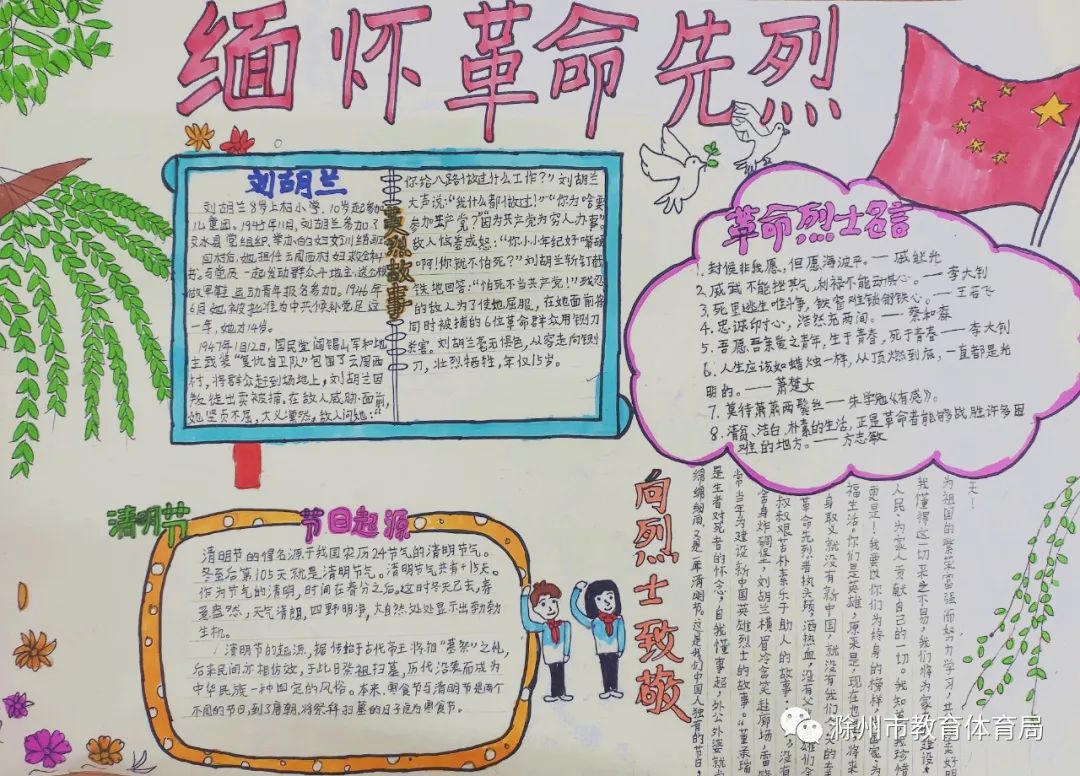 缅怀革命先烈
刘胡兰
英烈故事
刘胡兰8岁上村小学，10岁起参加
儿童团。1945年11月，刘胡兰参加了
文水县党组织举办的妇女训练班
回村后，她担任云周西村妇救会秘
书。与党员一起发动群众斗地主、送公粮
做军鞋，运动青年报名参加。1946年
6月她被批准为中共候补党员这
一年，她才14岁。
1947年1月12日，国民党阎锡山军和地
主武装“复仇自卫队”包围了云周西
村，将群众赶到场地上，刘胡兰因
叛徒出卖被捕，在敌人威胁面前，
她坚贞不屈，大义凛然，敌人问她：“
你给八路做过什么工作？”刘胡兰
大声说：“我什么都做过！”“你为啥要
参加共产党？”“因为共产党为穷人办事”
敌人恼羞成怒：“你小小年纪好嘴硬
啊！你就不怕死？”刘胡兰斩钉截
铁地回答：“怕死不当共产党！”残忍
的敌人为了使她屈服，在她面前将
同时被捕的6位革命群众用铡刀
杀害。刘胡兰毫无惧色，从容走向铡
刀，壮烈牺牲，年仅15岁。
革命烈士名言
1.封候非我愿，但愿海波平。——戚继光
2.威武不能挫其气，利禄不能动其心。——李大钊
3.死里逃生唯斗争，铁窗难锁钢铁心。——王若飞
4.忠诚印寸心，浩然充两间。——蔡和森
5.吾愿吾亲爱之青年，生于青春，死于青春——李大钊
6.人生应该如蜡烛一样，从顶燃到底，一直都是光
明的。——萧楚女
7.莫待萧萧两鬓丝——朱学勉《有感》。
8.清贫、洁白、朴素的生活，正是革命者能够战胜许多困
难的地方。——方志敏
清明节
节日起源
清明节的得名源于我国农历24节气的清明节气。
冬至后第105天就是清明节气。清明节气共有15天。
作为节气的清明，时间在春分之后。这时冬天已去，春
意盎然，天气清朗，四野明净，大自然处处显示出勃勃
生机。
清明节的起源，据传始于古代帝王将相“墓祭”之礼，
后来民间亦相仿效，于此日祭祖扫墓，历代沿袭而成为
中华民族一种固定的风俗。本来，寒食节与清明节是两个
不同的节日，到了唐朝，将祭拜扫墓的日子定为寒食节。
向烈士致敬
绵绵细雨，又是一年清明节。这是我们中国人独有的节日，
是生者对死者的怀念，自我懂事起，外公外婆就
常当年为建设新中国英雄烈士的故事。“董存瑞
舍身炸碉堡，刘胡兰横眉冷含笑赴刑场，雷锋
叔叔艰苦朴素乐于助人的故事
革命先烈昔执头颅，洒热血，没有
身取义就没有新中国，就没有我们
福生活。你们是英雄，原来是，现在也
更是！我要以你们为终身的榜样，
人民、为家人贡献自己的一切。我知
我懂得这一切来之不易，我们将为家
为祖国的繁荣富强而好好学习，共
天！
滁州市教育体育局